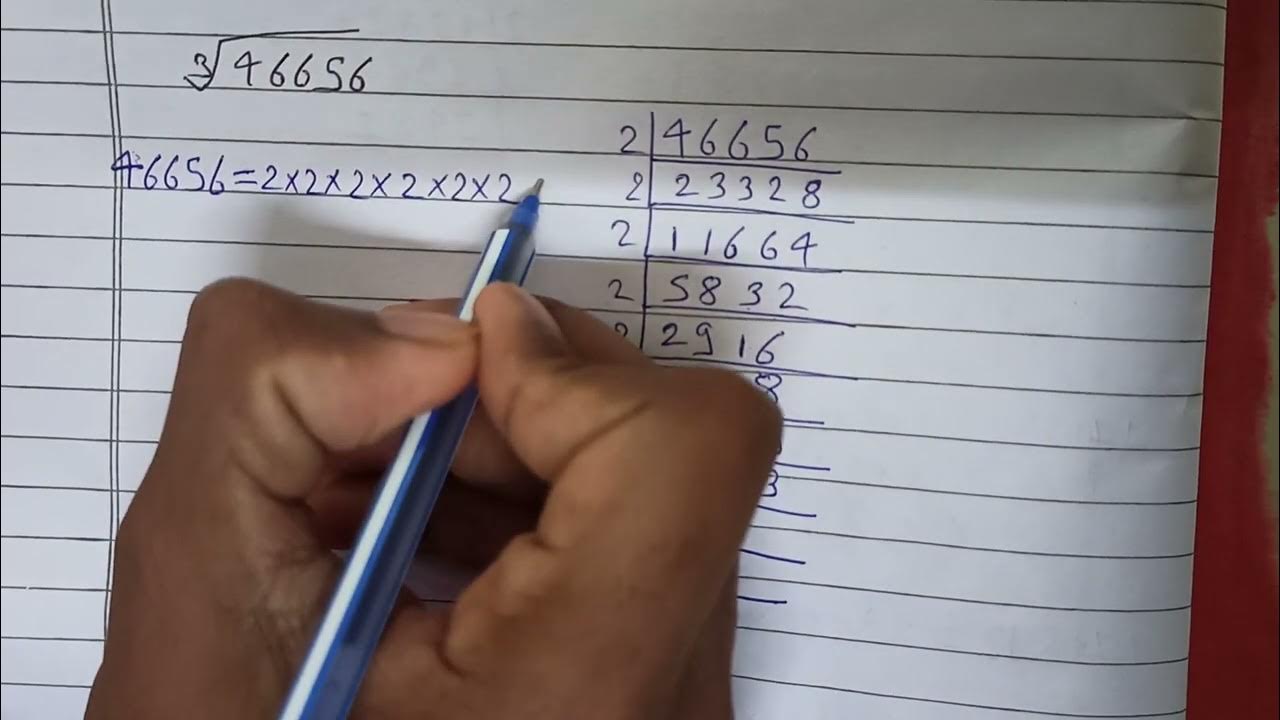 ∛46656
46656=2×2×2×2×2×2
2 | 46656
2 | 23328
2 | 11664
2 | 5832
2 | 2916
8
3